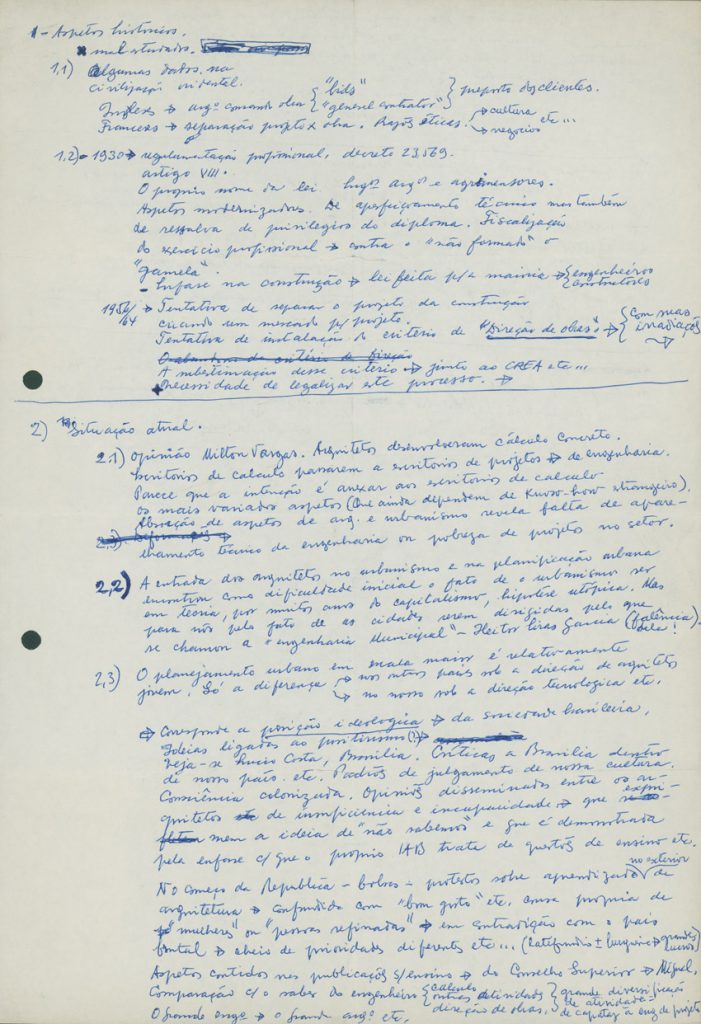 1 - Aspetos históricos.
* mal estudados.
1.1) Algumas dados na
civilização ocidental.
Ingleses → argº comanda obra { "bids" "general contrator" } preposto dos clientes.
Franceses → separação projeto x obra. Razões éticas. → cultura → negócios etc...
1.2) - 1930 → regulamentação profissional, decreto 23.569.
artigo VIII.
O próprio nome da lei Engos argos e agrimensores.
Aspetos modernizadores. De aperfeiçoamento técnico mas também
de ressalva de privilégios do diploma. Fiscalização
do exercício profissional → contra o "não formado" o
"gamela".
- Enfase na construção → lei feita p/a maioria → { engenheiros construtores
→ Tentativa de separar o projeto da construção
criando um mercado p/ projeto.
Tentativa de instalação do critério de "Direção de obras" → { com suas irradiações →
O abandono do critério de Direção
A subestimação desse critério → junto ao CREA etc...
necessidade de legalizar este processo. →
2) Situação atual.
2.1) Opinião Milton Vargas. Arquitetos desenvolveram cálculo concreto.
Escritórios de calculo passarem a escritorios de projetos → de engenharia.
Parece que a intenção é anexar aos escritorios de calculo
os mais variados aspetos (Que ainda dependem de Know-how estrangeiro).
Absorção de aspetos de arq. e urbanismo revela falta de apare-
2,3)
lhamento técnico da engenharia ou pobreza de projetos no setor.
2,2) A entrada dos arquitetos no urbanismo e na planificação urbana
encontra como dificuldade inicial o fato de o urbanismo ser
em teoria, por muitos anos do capitalismo, hipótese utópica. Mas
para nós pelo fato de as cidades serem dirigidas pelo que
se chamou a "engenharia Municipal" - Heitor Eiras Garcia (falência) dela!
2,3) O planejamento urbano em escala maior é relativamente
jovem. Só a diferença → nos outros países sob a direção de arquitetos
→ no nosso sob a direção tecnologica etc.
→ Corresponde a posição ideologica → da sociedade brasileira.
Ideias ligadas ao positivismo (?) →
Veja-se Lucio Costa, Brasilia. Críticas a Brasilia dentro
de nosso país. etc. Padrões de julgamento de nossa cultura.
Consciência colonizada. Opiniões disseminadas entre os ar-
quitetos de insuficiencia e incapacidade → que expri-
mem a ideia de "não sabemos" e que é demonstrada
pela enfase c/ que o próprio IAB trata de questões de ensino etc.
No começo da Republica - bolsas - protestos sobre aprendizado no exterior de
arquitetura → confundida com "bom gosto" etc. cousa propria de
"mulheres" ou "pessoas refinadas" → em contradição com o país
brutal → cheio de prioridades diferentes etc... (latifundio ± burguesia → grandes lucros)
Aspetos contidos nas publicações s/ensino → do Conselho Superior → Miguel.
Comparação c/o saber do engenheiro { calculo outras atividades direção de obras. } grande diversificação de atividade -
O Grande engº → o Grande argº etc. de capataz a eng. de projeto